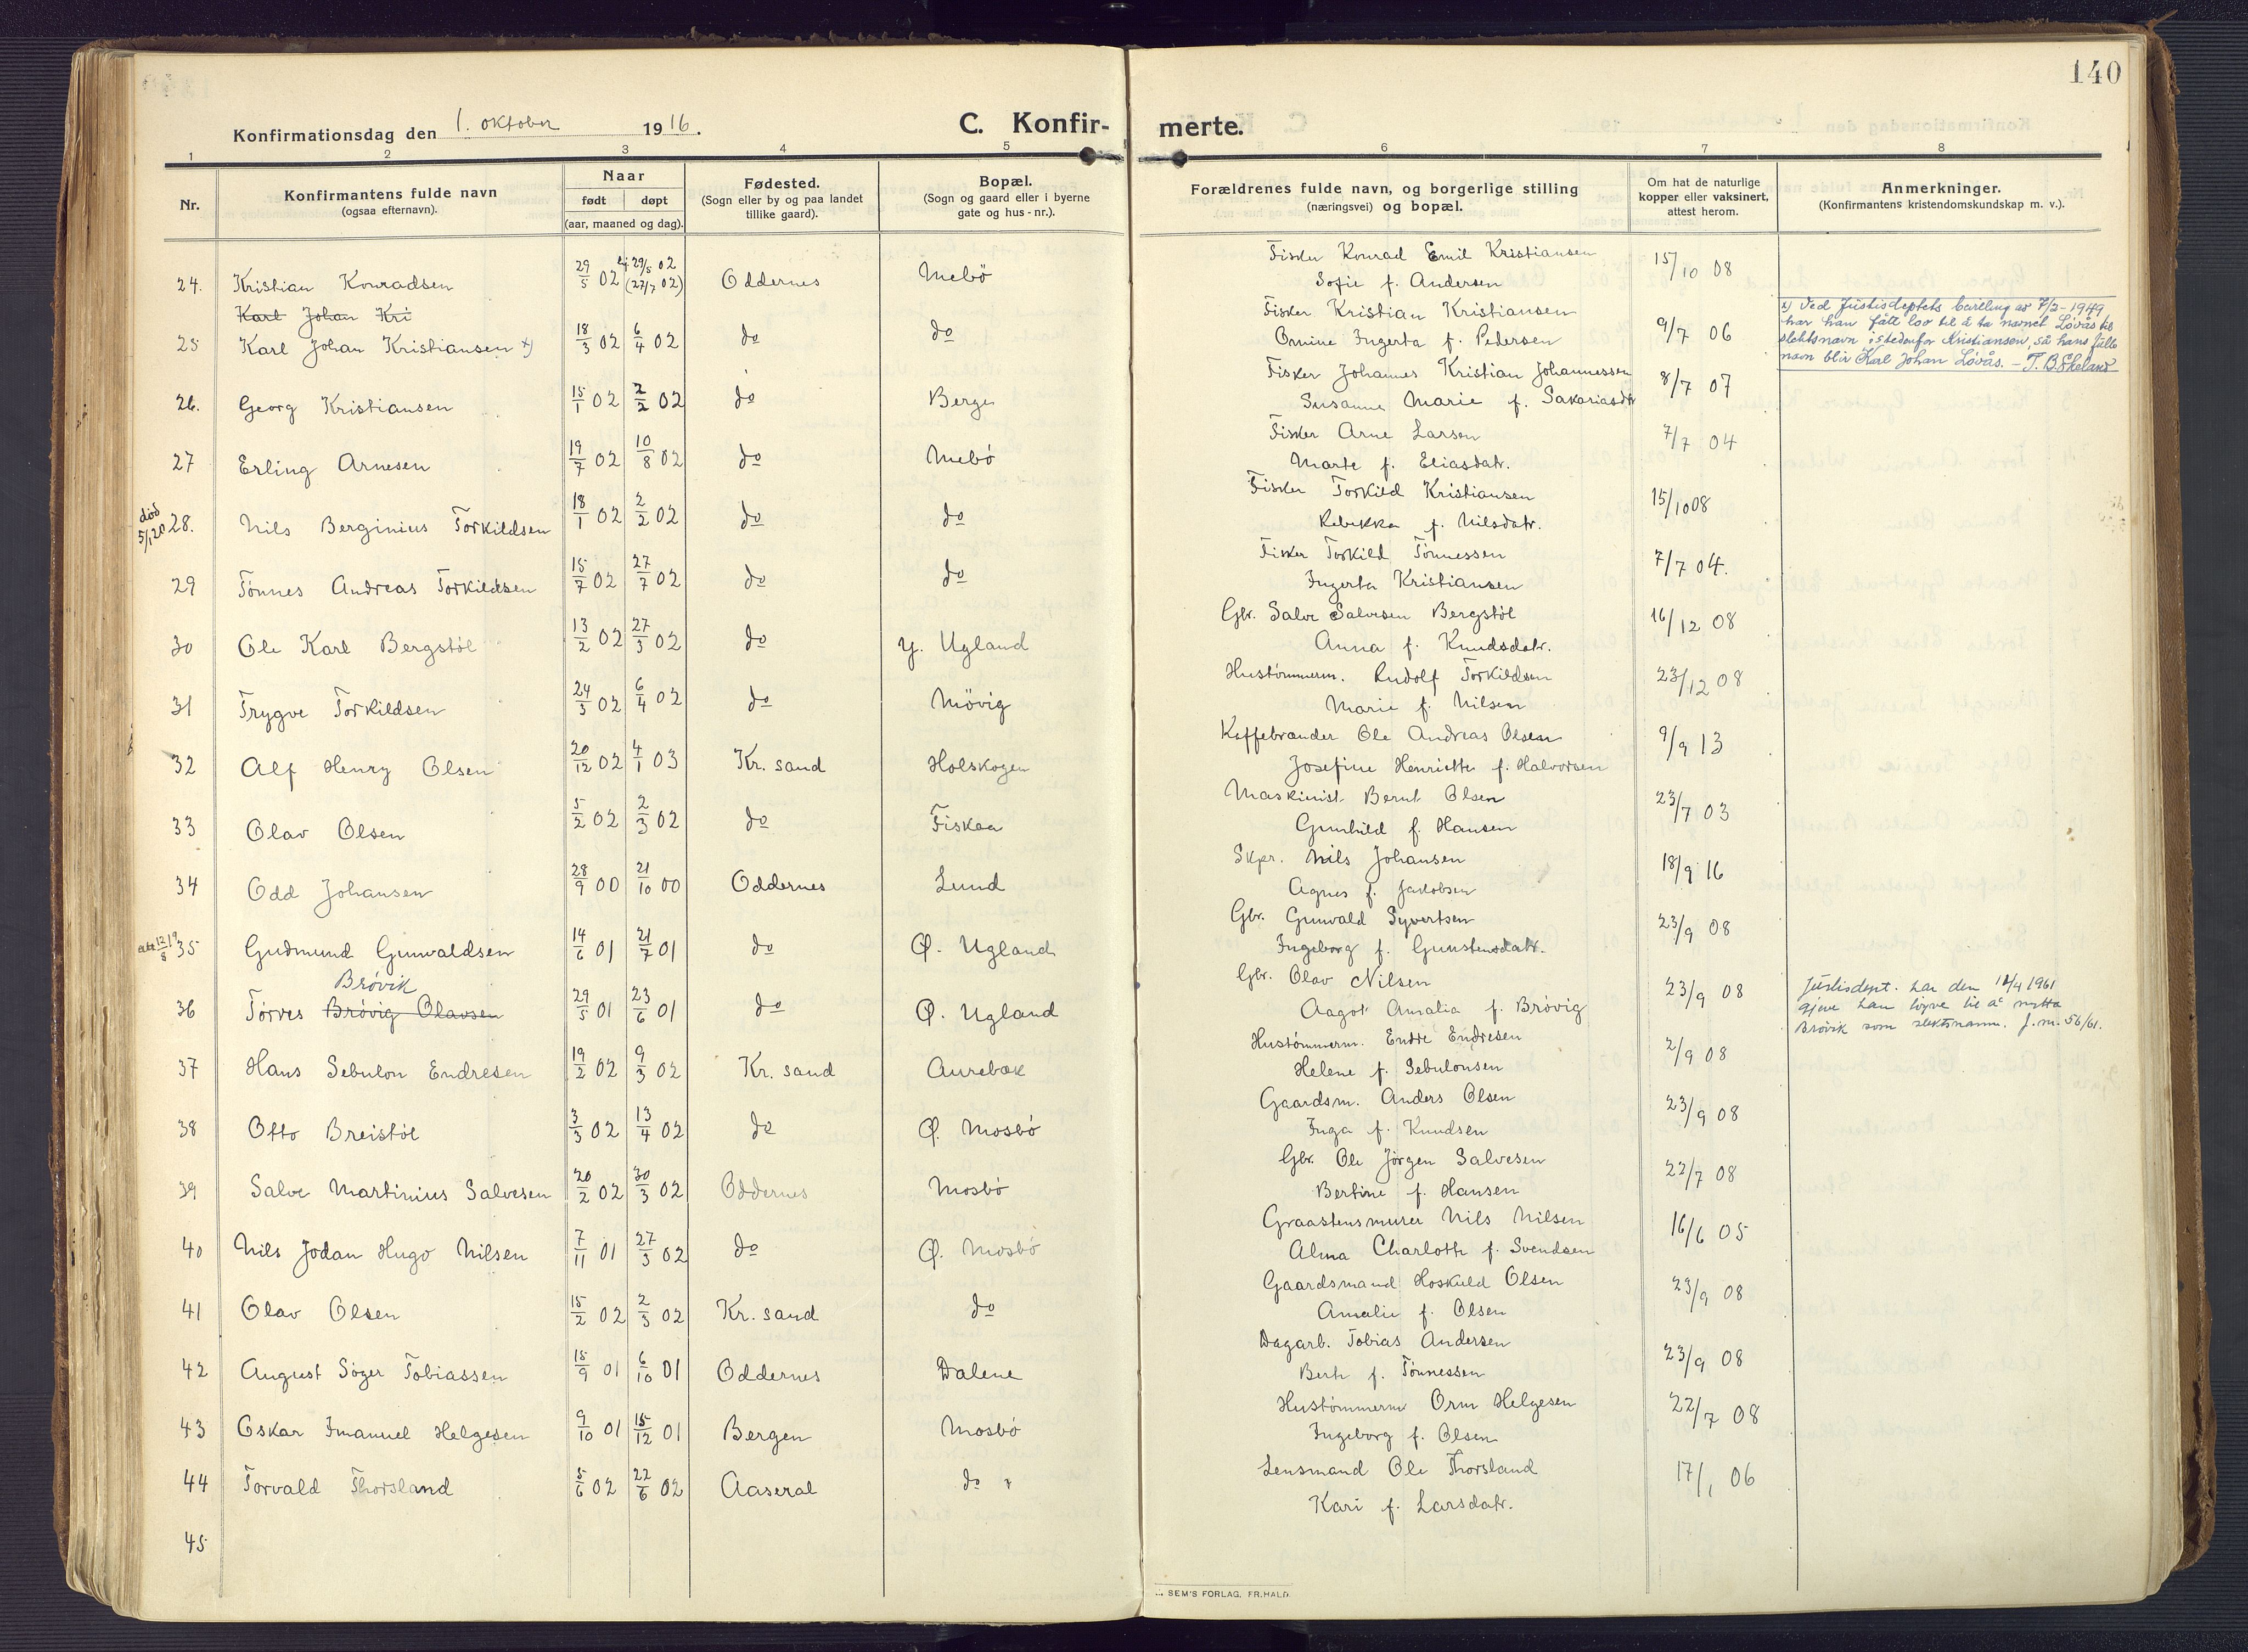 140
Konfirmationsdag den 1. oktober 1916.
C. Konfir-
merte.
1 2 3 4 5 6 7 8
Nr.
Konfirmantens fulde navn
(ogsaa efternavn).
Naar
født døpt
(aar, maaned og dag).
Fødested.
(Sogn eller by og paa landet
tillike gaard).
Bopæl.
(Sogn og gaard eller i byerne
gate og hus-nr.).
Forældrenes fulde navn, og borgerlige stilling
(næringsvei) og bopæl.
Om hat de naturlige
kopper eller vaksinert,
attest herom.
Anmerkninger.
(Konfirmantens kristendomskundskap m. v.).
24. Kristian Konradsen 29/5 02 29/5 02 (27/7 02) Oddernes Mebö
Fisker Konrad Emil Kristiansen 15/10 08
Sofie f. Andersen
Karl Johan Kri
25 Karl Johan Kristiansen x) 18/3 02 6/4 02 do do
Fisker Kristian Kristiansen 9/7 06
Omine Ingerta f. Pedersen
x) Ved Justisdeptets bevilling av 7/2-1949
har han fått lov til å ta navnet Løvås til
slektsnavn istedenfor Kristiansen, så hans fulle
navn blir Karl Johan Løvås. – T. B. Ekeland
26. Georg Kristiansen 15/1 02 2/2 02 do Berge
Fisker Johannes Kristian Johannessen 8/7 07
Susanne Marie f. Sakariasdtr
27 Erling Arnesen 19/7 02 10/8 02 do Mebö
Fisker Arne Larsen 7/7 04
Marte f. Eliasdatr.
død
5/1 20 28. Nils Berginius Torkildsen 18/1 02 2/2 02 do do
Fisker Torkild Kristiansen 15/10 08
Rebekka f. Nilsdatr.
29 Tönnes Andreas Torkildsen 15/7 02 27/7 02 do do
Fisker Torkild Tönnessen 7/7 04.
Ingerta Kristiansen
30 Ole Karl Bergstöl 13/2 02 27/3 02 do Y. Ugland
Gbr. Salve Salvesen Bergstöl 16/12 08
Anna f. Knudsdatr.
31 Trygve Torkildsen 24/3 02 6/4 02 do Mövig
Hustömmerm. Rudolf Torkildsen 23/12 08
Marie f. Nilsen
32 Alf Henry Olsen 20/12 02 4/1 03 Kr. sand Holskogen
Kaffebrænder Ole Andreas Olsen 9/9 13
Josefine Henriette f. Halvorsen
33 Olav Olsen 5/2 02 2/3 02 do Fiskaa
Maskinist Bernt Olsen 23/7 03
Gunhild f. Hansen
34 Odd Johansen 28/9 00 21/10 00 Oddernes Lund
Skpr. Nils Johansen 18/9 16
Agnes f. Jakobsen
35 Gudmund Gunvaldsen 14/6 01 21/7 01 do Ø. Ugland
Gbr. Gunvald Syvertsen 23/9 08
Ingeborg f. Gunstensdatr.
Brövik
36 Törres Brövig Olavsen 29/5 01 23/6 01 do Ø. Ugland
Gbr. Olav Nilsen 23/9 08
Aagot Amalia f. Brövig
Justisdept. har den 12/4 1961
gjeve han löyve til å nytta
Brövik som slektsnamn. J.nr. 56/61.
37 Hans Sebulon Endresen 19/2 02 9/3 02 Kr. sand Aurebæk
Hustömmerm. Endre Endresen 2/9 08
Helene f. Sebulonsen
38 Otto Breistöl 3/3 02 13/4 02 do Ø. Mosbö
Gaardsm. Anders Olsen 23/9 08
Inga f. Knudsen
39 Salve Martinius Salvesen 20/2 02 30/3 02 Oddernes Mosbö
Gbr. Ole Jörgen Salvesen 22/7 08
Bertine f. Hansen
40 Nils Jodan Hugo Nilsen 7/11 01 27/3 02 do Ø. Mosbö
Graastensmurer Nils Nilsen 16/6 05
Alma Charlotte f. Svendsen
41 Olav Olsen 15/2 02 2/3 02 Kr. sand do
Gaardsmand Hoskuld Olsen 23/9 08
Amalie f. Olsen
42 August Söger Tobiassen 15/9 01 6/10 01 Oddernes Dalene
Dagarb. Tobias Andersen 23/9 08
Berte f. Tönnessen
43 Oskar Imanuel Helgesen 9/10 01 15/12 01 Bergen Mosbö
Hustömmerm Orm Helgesen 22/7 08
Ingeborg f. Olsen
44 Torvald Thorsland 5/6 02 22/6 02 Aaseral do
Lensmand Ole Thorsland 17/1 06
Kari f. Larsdatr.
45
SEM'S FORLAG, FR.HALD